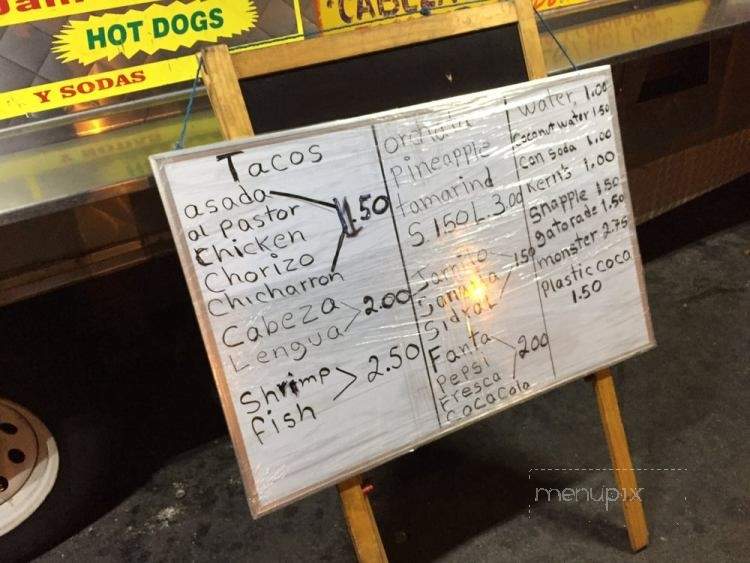 HOT DOGS
Y SODAS
Tacos
asada
al Pastor
Chicken
Chorizo
Chicharron
1.50
Cabeza
Lengua
2.00
Shrimp
fish
2.50
orchata
pineapple
tamarind
S 1.50 L. 3.00
Jarrito
Sangria
Sidral
1.50
Fanta
Pepsi
Fresca
CocaCola
2.00
water, 1.00
Coconut water 1.50
Can soda 1.00
Kern's 1.00
Snapple 1.50
gatorade 1.50
monster 2.75
plastic coca
1.50
menupix